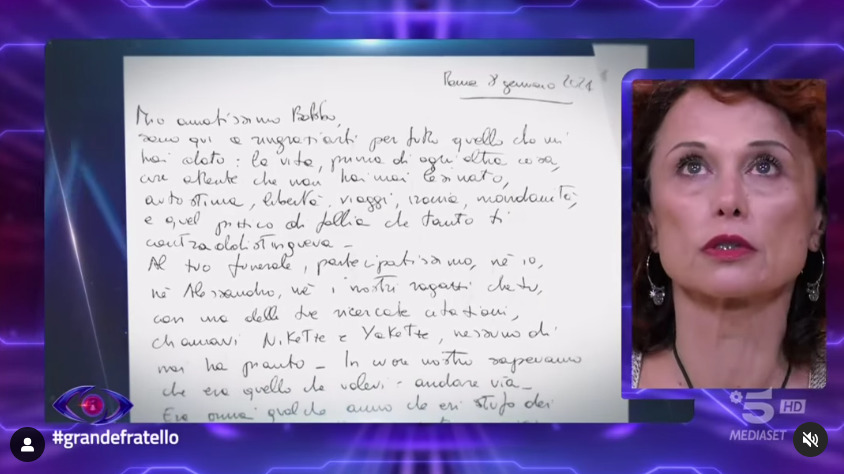 Roma 8 gennaio 2021
Mio amatissimo Babbo,
sono qui a ringraziarti per tutto quello che mi
hai dato: la vita, prima di ogni altra cosa,
cure attente che non hai mai lesinato,
autostima, libertà, viaggi, ironia, mondanità,
e quel pizzico di follia che tanto ti
contraddistingueva -
Al tuo funerale, partecipatissimo, né io,
né Alessandro, né i nostri ragazzi che tu,
con una delle tue ricercate citazioni,
chiamavi NiKeTTe e YaKeTTe, nessuno di
noi ha pianto - In cuor nostro sapevamo
che era quello che volevi - andare via -
Era ormai qualche anno che eri stufo dei
#grandefratello
5 HD
MEDIASET